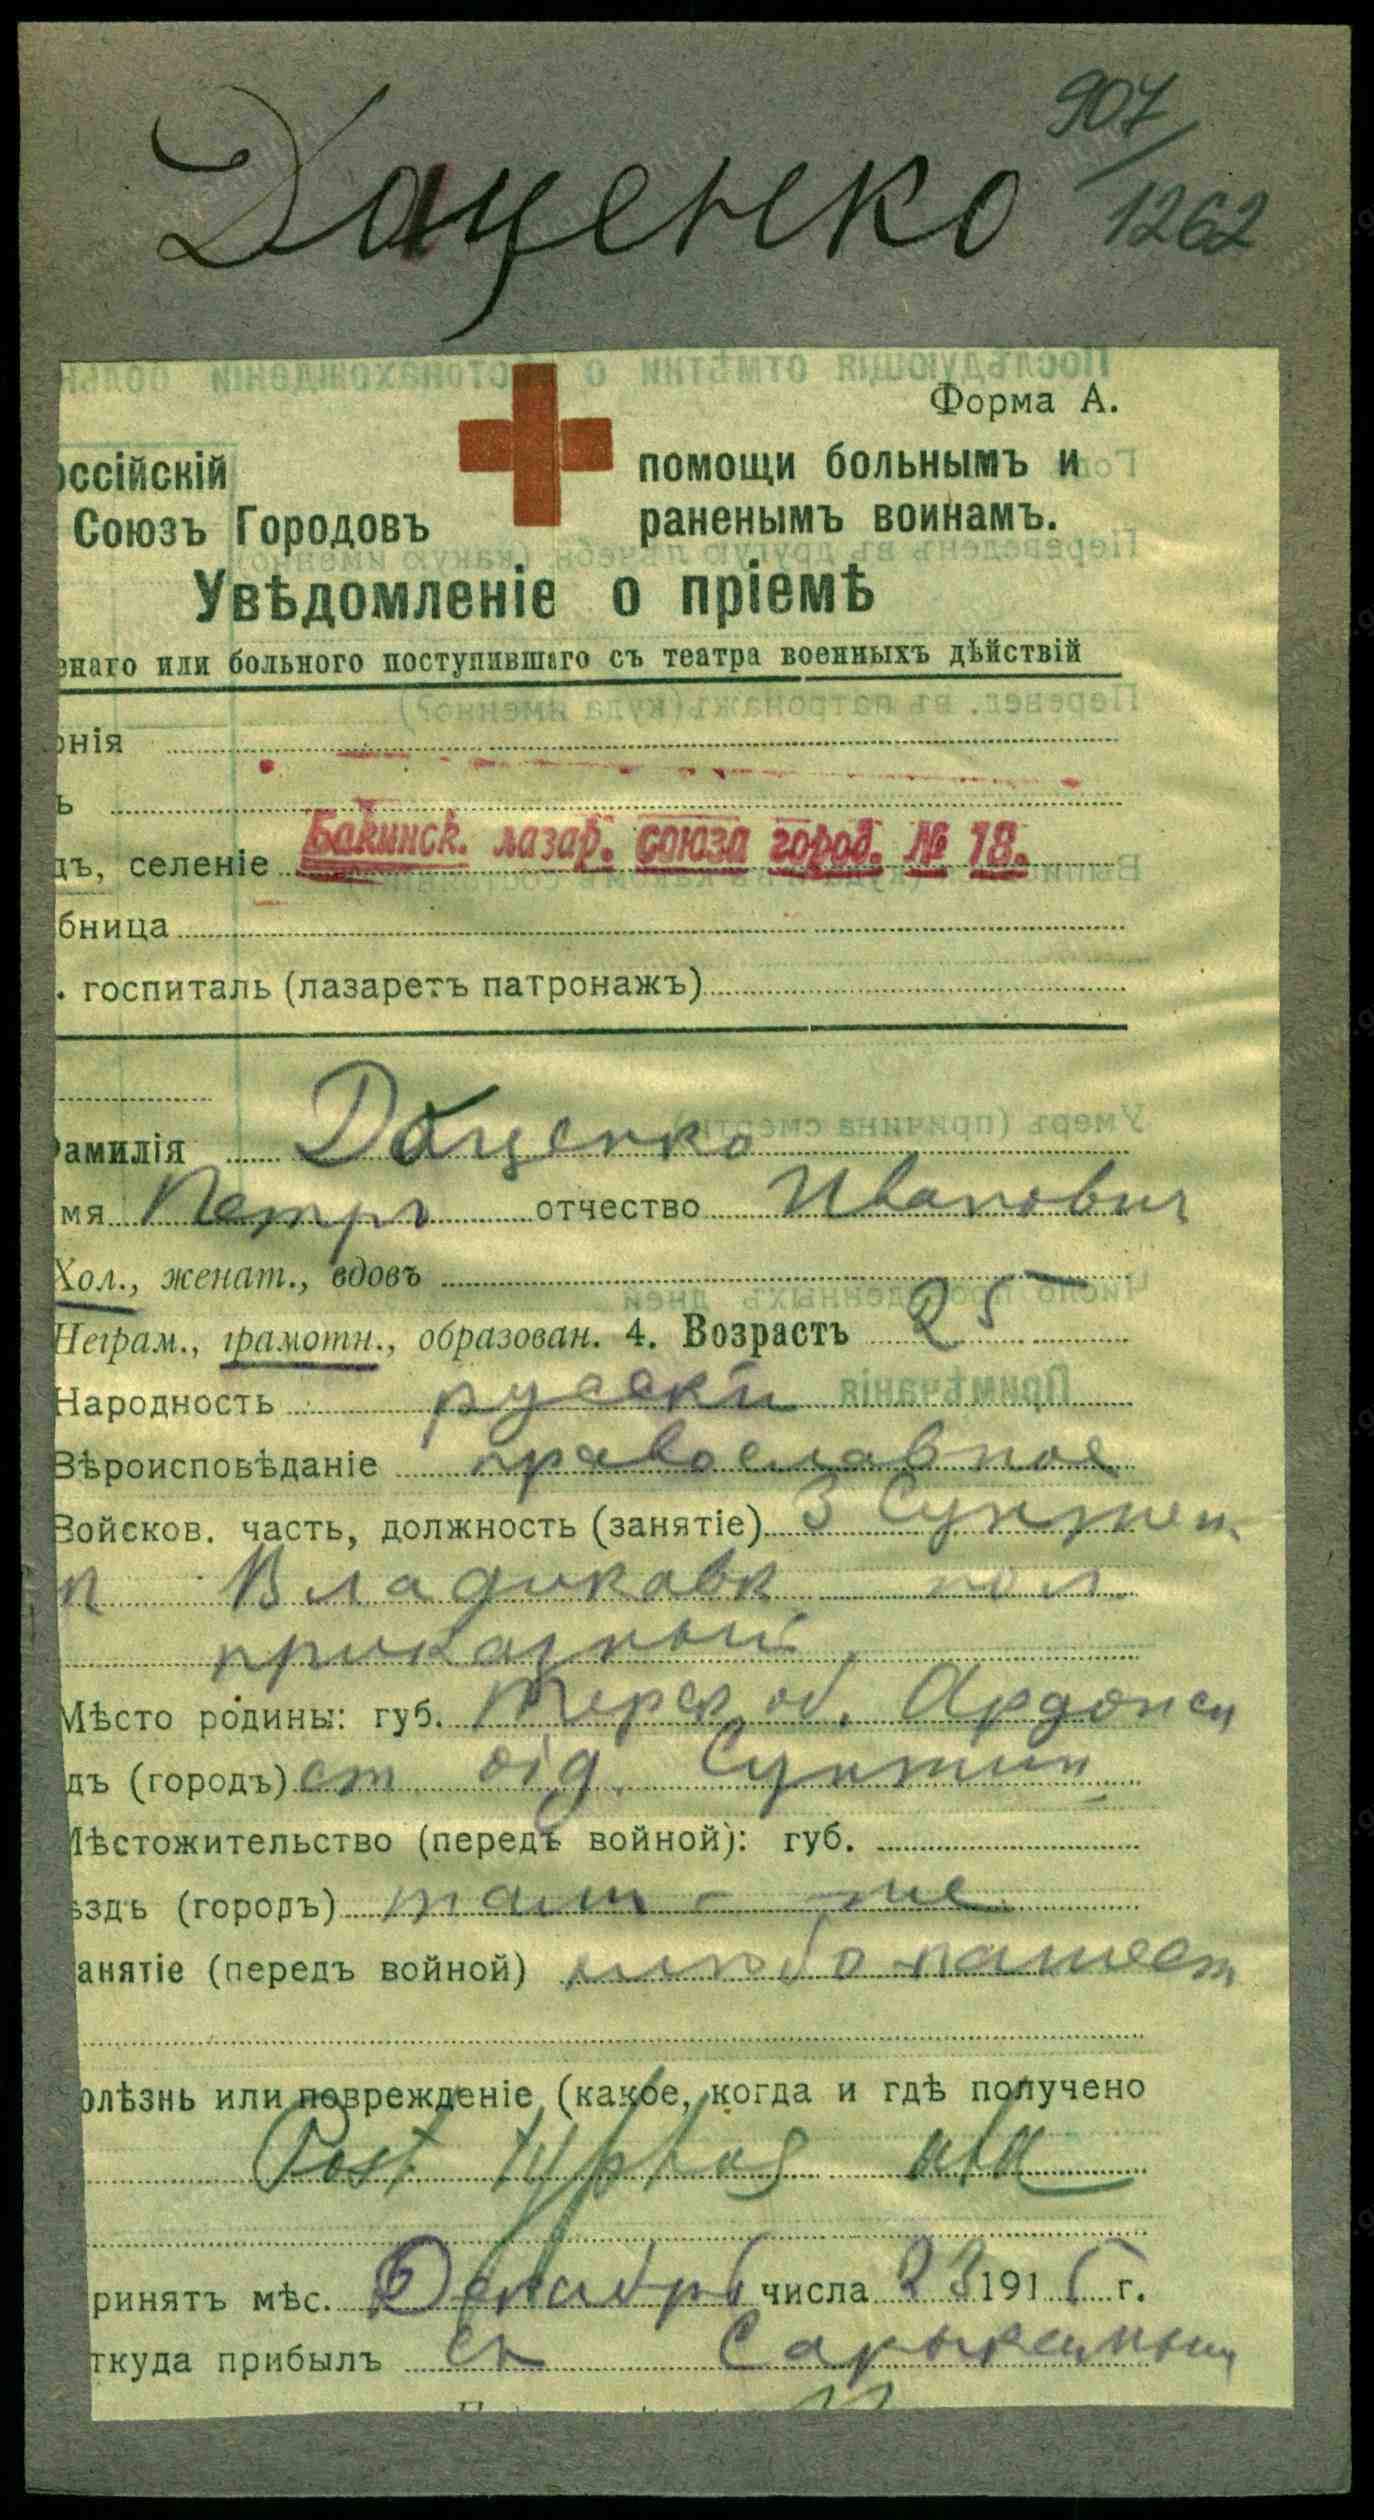 907/1262
Даценко
Форма А.
оссійскій
Союзъ Городовъ
помощи больнымъ и
раненымъ воинамъ.
Увѣдомленіе о пріемѣ
енаго или больного поступившаго съ театра военныхъ дѣйствій
онія
ъ
дъ, селеніе Бакинск. лазар. союза город. № 18.
бница
. госпиталь (лазаретъ патронажъ)
амилія Даценко
мя Петръ отчество Иванович
Хол., женат., вдовъ
Неграм., грамотн., образован. 4. Возрастъ 25
Народность русскій
Вѣроисповѣданіе православное
Войсков. часть, должность (занятіе) 3 Сунжен.
п Владикавк пол.
приказный
Мѣсто родины: губ. Терск об. Ардонск
дъ (городъ) ст отд. Сунжин
Мѣстожительство (передъ войной): губ.
ѣздъ (городъ) там-же
анятіе (передъ войной) хлѣбопашест
олѣзнь или поврежденіе (какое, когда и гдѣ получено
Post typhos
ринятъ мѣс. Декабрь числа 23 1915 г.
ткуда прибылъ съ Сарыкамыш